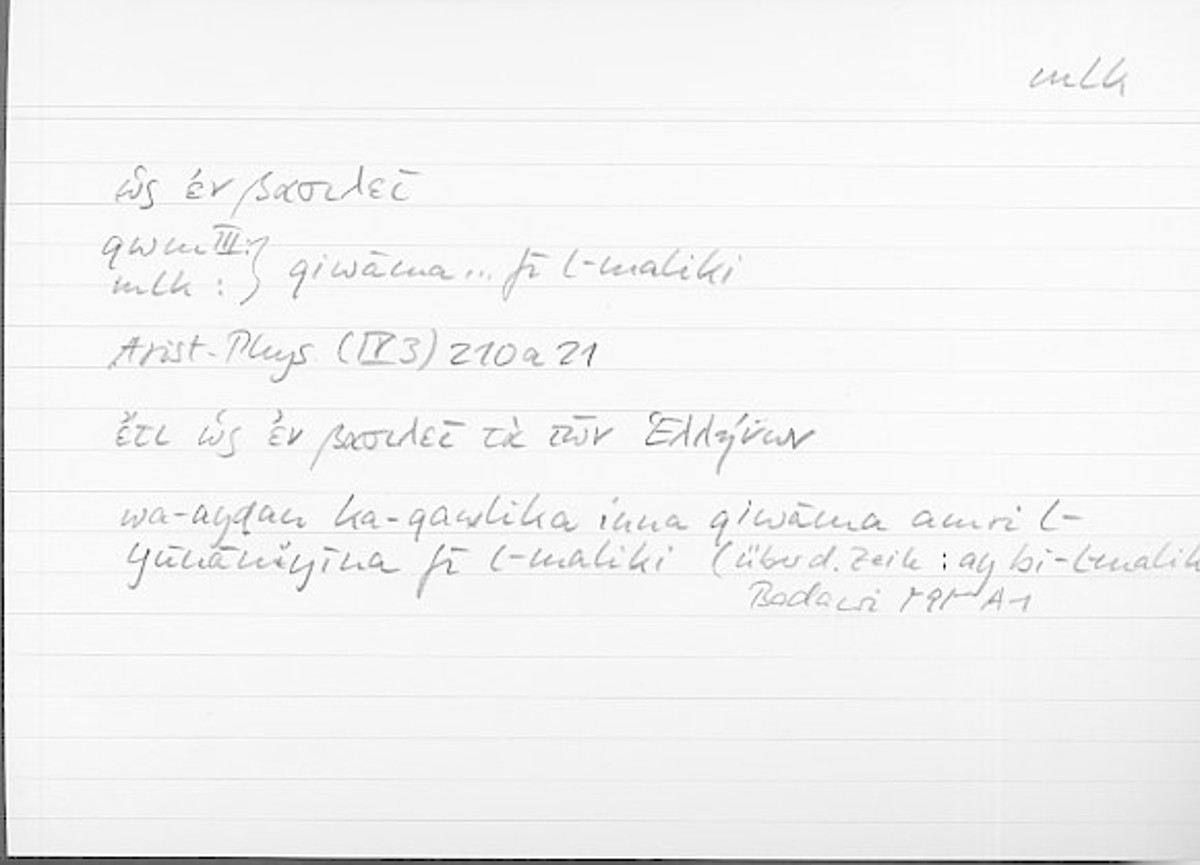 mlk
ὡς ἐν βασιλεῖ
qwm III:
mlk : } qiwāma... fī l-maliki
Arist. Phys (IV 3) 210a21
ἔτι ὡς ἐν βασιλεῖ τὰ τῶν Ἑλλήνων
wa-ayḍan ka-qawlika inna qiwāma amri l-
Yūnānīyīna fī l-maliki (über d. Zeile : ay bi-l-malik
Badawi A1